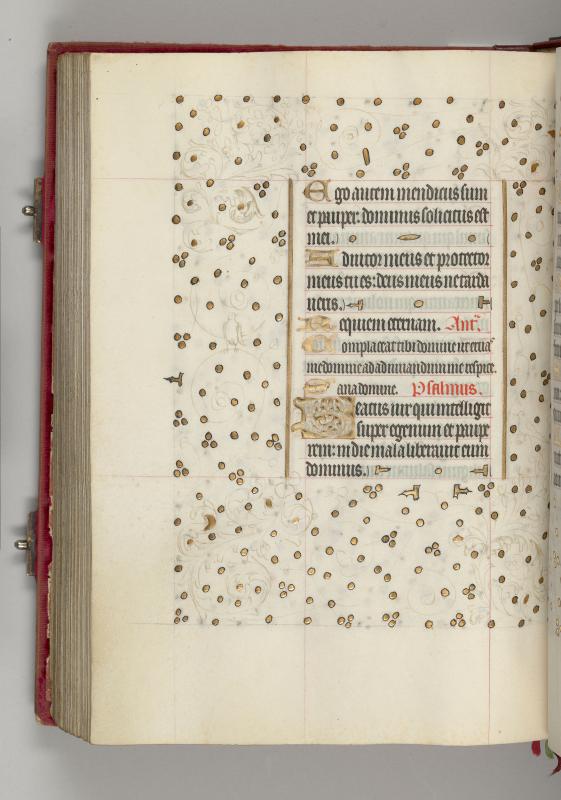 Ego autem mendicus sum
et pauper: dominus solicitus est
mei.
Adiutor meus et protector
meus tu es: deus meus ne tarda
ueris.
Requiem eternam. Ant.
Complaceat tibi domine ut eruas
me domine ad adiuuandum me respice.
ana domine. Psalmus.
Beatus uir qui intelligit
super egenum et paupe
rem: in die mala liberauit eum
dominus.